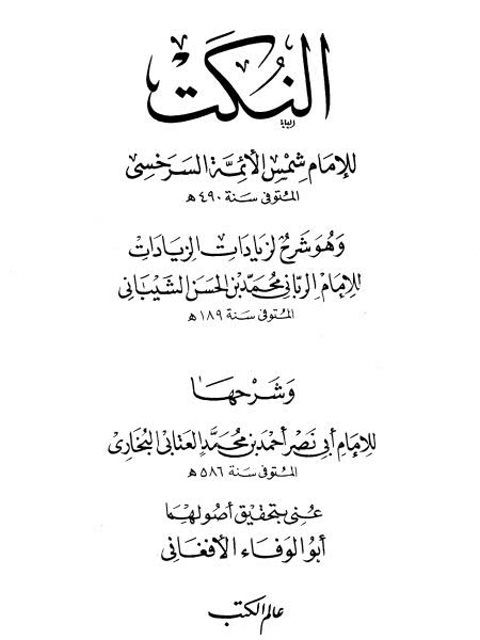 النُكَت
للإمَام شمس الأئِمَّة السَرَخسِى
المتوفى سنة ٤٩٠ ه
وَهُوَ شَرحٌ لزيَادَات الزيَادَات
للإمَام الربّاني محمّد بن الحَسَن الشيبَاني
المتوفى سنة ١٨٩ ه
وَشَرْحهَا
للإمَام أبي نَصْر أحمَد بن محمَّد العتابى البُخارى
المتوفى سنة ٥٨٦ ه
عُنِى بتحقيق أصُولهمَا
أبو الوفاء الأفغانى
عالم الكتب